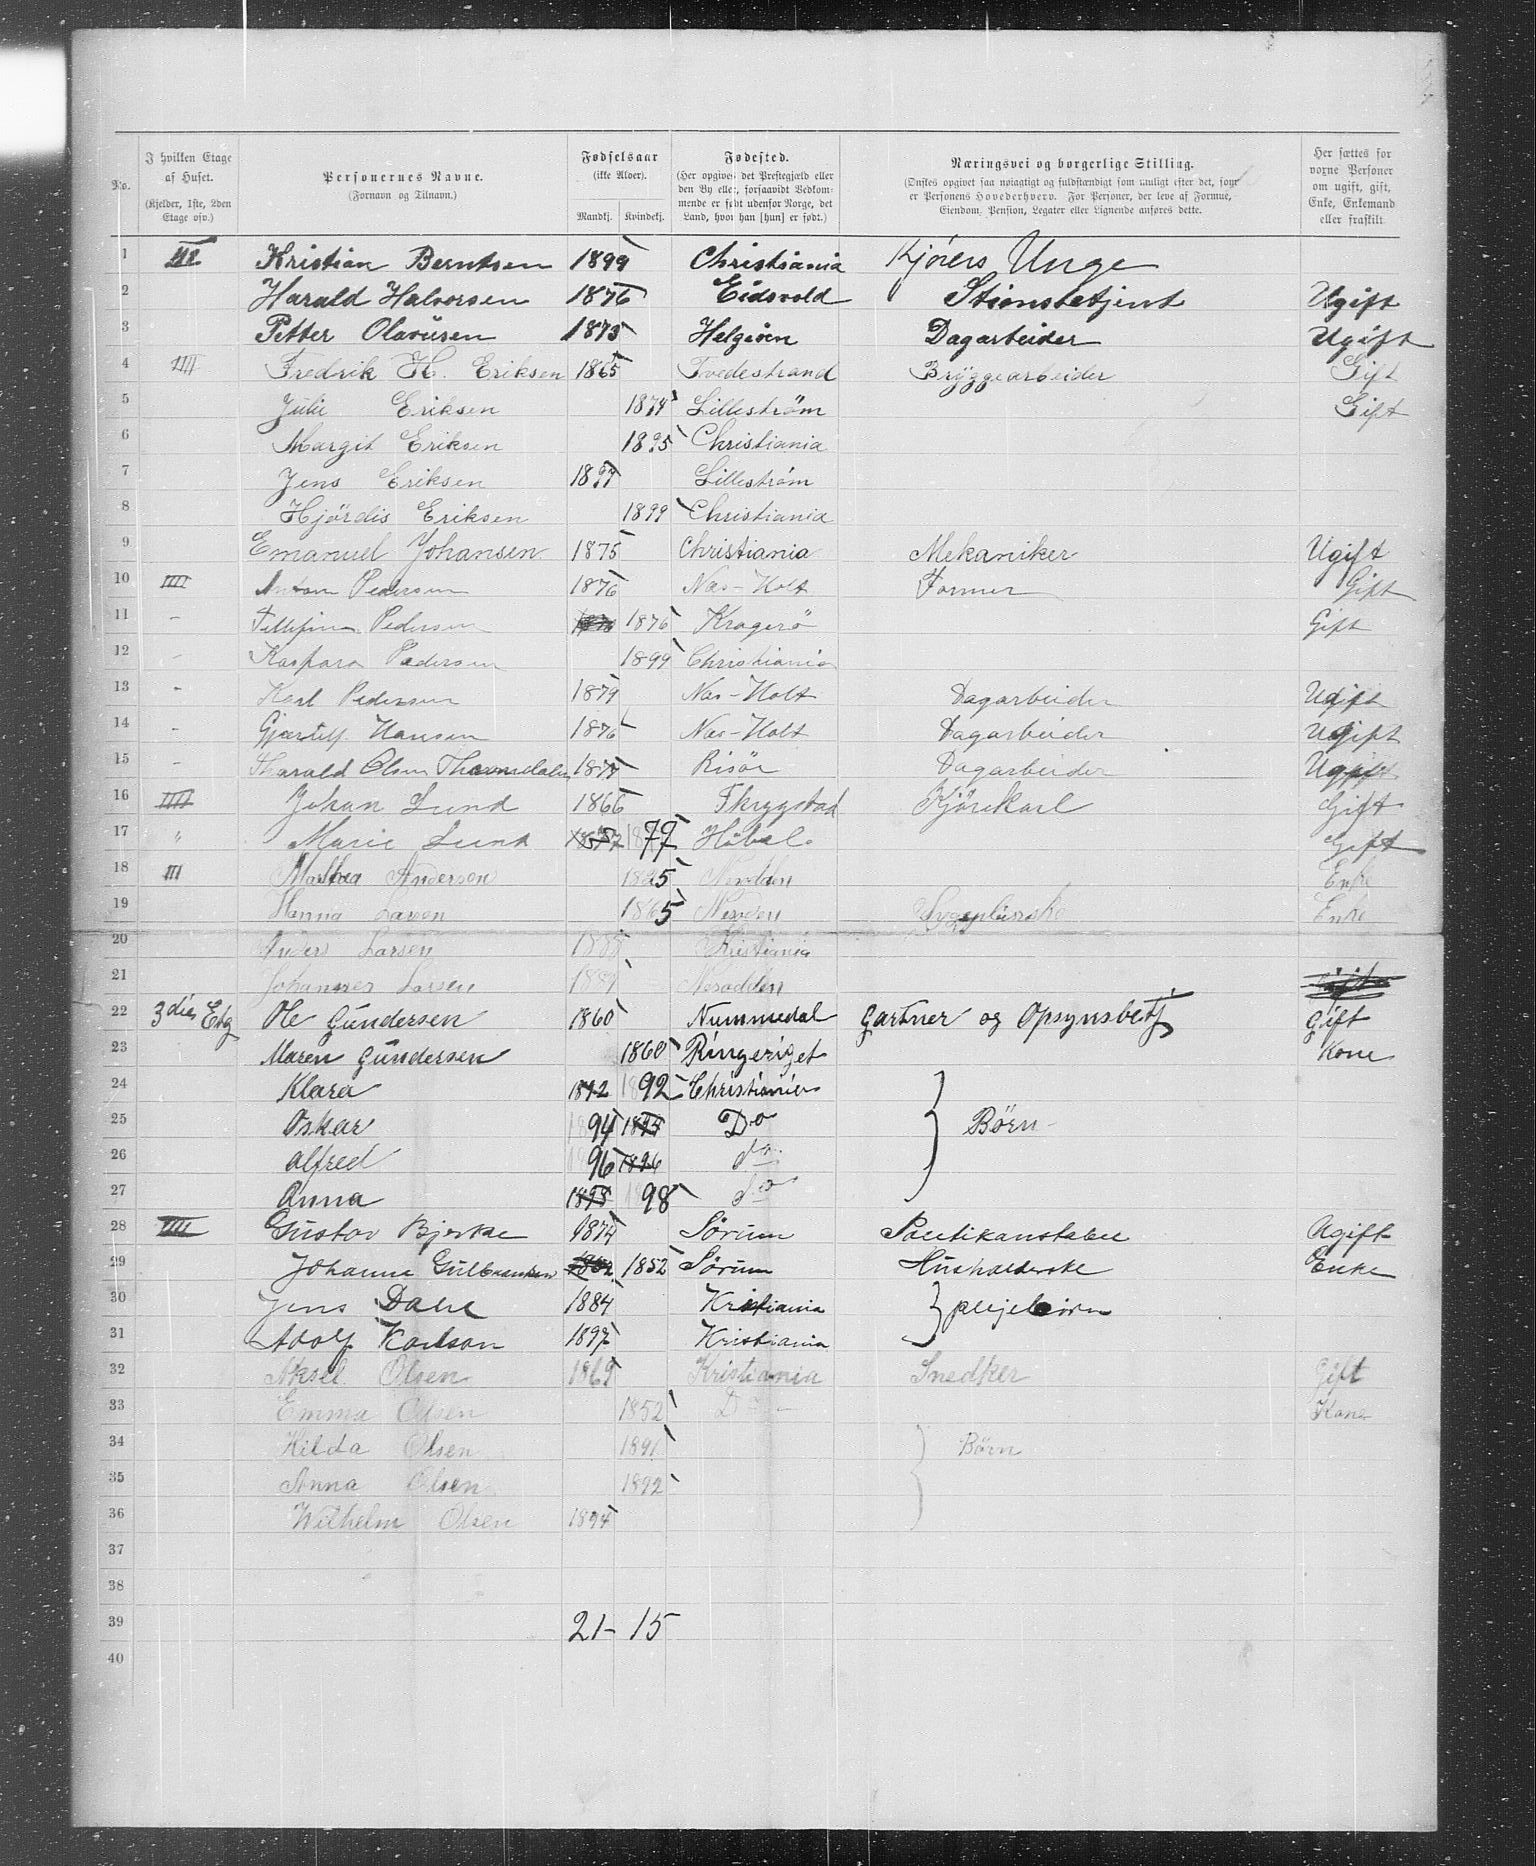 No.
I hvilken Etage af Huset.
(Kjelder, 1ste, 2den Etage osv.)
Personernes Navne.
(Fornavn og Tilnavn.)
Fødselsaar
(ikke Alder).
Mandkj. Kvindekj.
Fødested.
(Her opgives det Præstegjæld eller
den By eller, forsaavidt Vedkom-
mende er født udenfor Norge, det
Land, hvor han [hun] er født.)
Næringsvei og borgerlige Stilling.
(Ønskes opgivet saa nøiagtigt og fuldstændigt som muligt efter det, som
er Personens Hovederhverv. For Personer, der leve af Formue,
Eiendom, Pension, Legater eller Lignende anføres dette.
Her sættes for
voxne Personer
om ugift, gift,
Enke, Enkemand
eller fraskilt
1 III Kristian Berntsen 1899 Christiania Kjørers Unge
2 Harald Halvorsen 1876 Eidsvold Stionsbetjent Ugift
3 Petter Olavüsen 1875 Helgøen Dagarbeider Ugift
4 IIII Fredrik H. Eriksen 1865 Tvedestrand Bryggearbeider Gift
5 Julie Eriksen 1874 Lillestrøm Gift
6 Margit Eriksen 1895 Christiania
7 Jens Eriksen 1897 Lillestrøm
8 Hjørdis Eriksen 1899 Christiania
9 Emanuel Johansen 1875 Christiania Mekaniker Ugift
10 IIII Anton Pedersen 1876 Næs-Holt Former Gift
11 - Pedersen 1876 Kragerö Gift
12 - Kaspara Pedersen 1899 Christiania
13 - Karl Pedersen 1879 Næs-Holt Dagarbeider Ugift
14 - Hansen 1876 Næs-Holt Dagarbeider Ugift
15 - Tharald Olsen 1877 Risör Dagarbeider Ugift
16 IIII Johan Lund 1866 Skrygstad Kjørekarl Gift
17 " Marie Lund 1877 79 Høbøl Gift
18 III Mathea Anderson 1825 Enke
19 Hanna Larsen 1865 Enke
20 Anders Larsen 1888 Kristiania
21 Johannes Larsen 1889 Nesodden
22 3die Etg Ole Gundersen 1860 Nummedal Gartner og Opsynsbetj Gift
23 Maren Gundersen 1860 Ringeriget Kone
24 Klara 1892 92 Christiania
25 Oskar 94 Do Børn
26 Alfred 96 1896 do
27 Anna 98 do
28 IIII Gustav Bjerke 1874 Sørum Politikonstabel Ugift
29 Johanne Gulbrandsen 1852 1852 Sørum Husholderske Enke
30 Jens Dahl 1884 Kristiania plejebørn
31 Adolf Karlson 1897 Kristiania
32 Aksel Olsen 1869 Kristiania Snedker Gift
33 Emma Olsen 1852 Do Kone
34 Hilda Olsen 1891 Børn
35 Anna Olsen 1892
36 Wilhelm Olsen 1894
37
38
39 21- 15
40